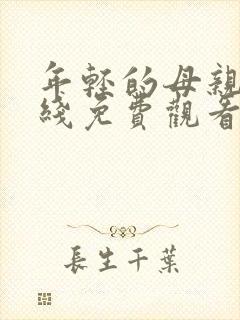 年轻的母親
綫免費觀看
長生千葉